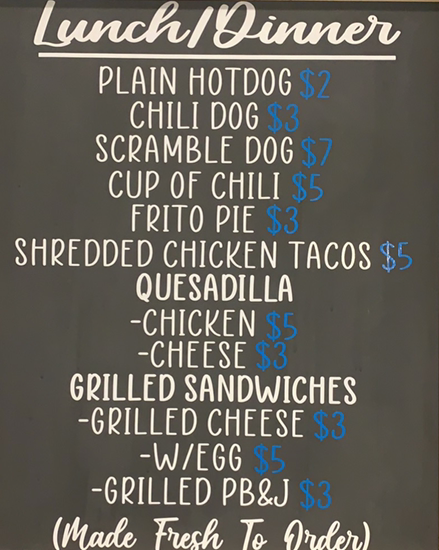 Lunch/Dinner
PLAIN HOTDOG $2
CHILI DOG $3
SCRAMBLE DOG $7
CUP OF CHILI $5
FRITO PIE $3
SHREDDED CHICKEN TACOS $5
QUESADILLA
-CHICKEN $5
-CHEESE $3
GRILLED SANDWICHES
-GRILLED CHEESE $3
-W/EGG $5
-GRILLED PB&J $3
(Made Fresh To Order)